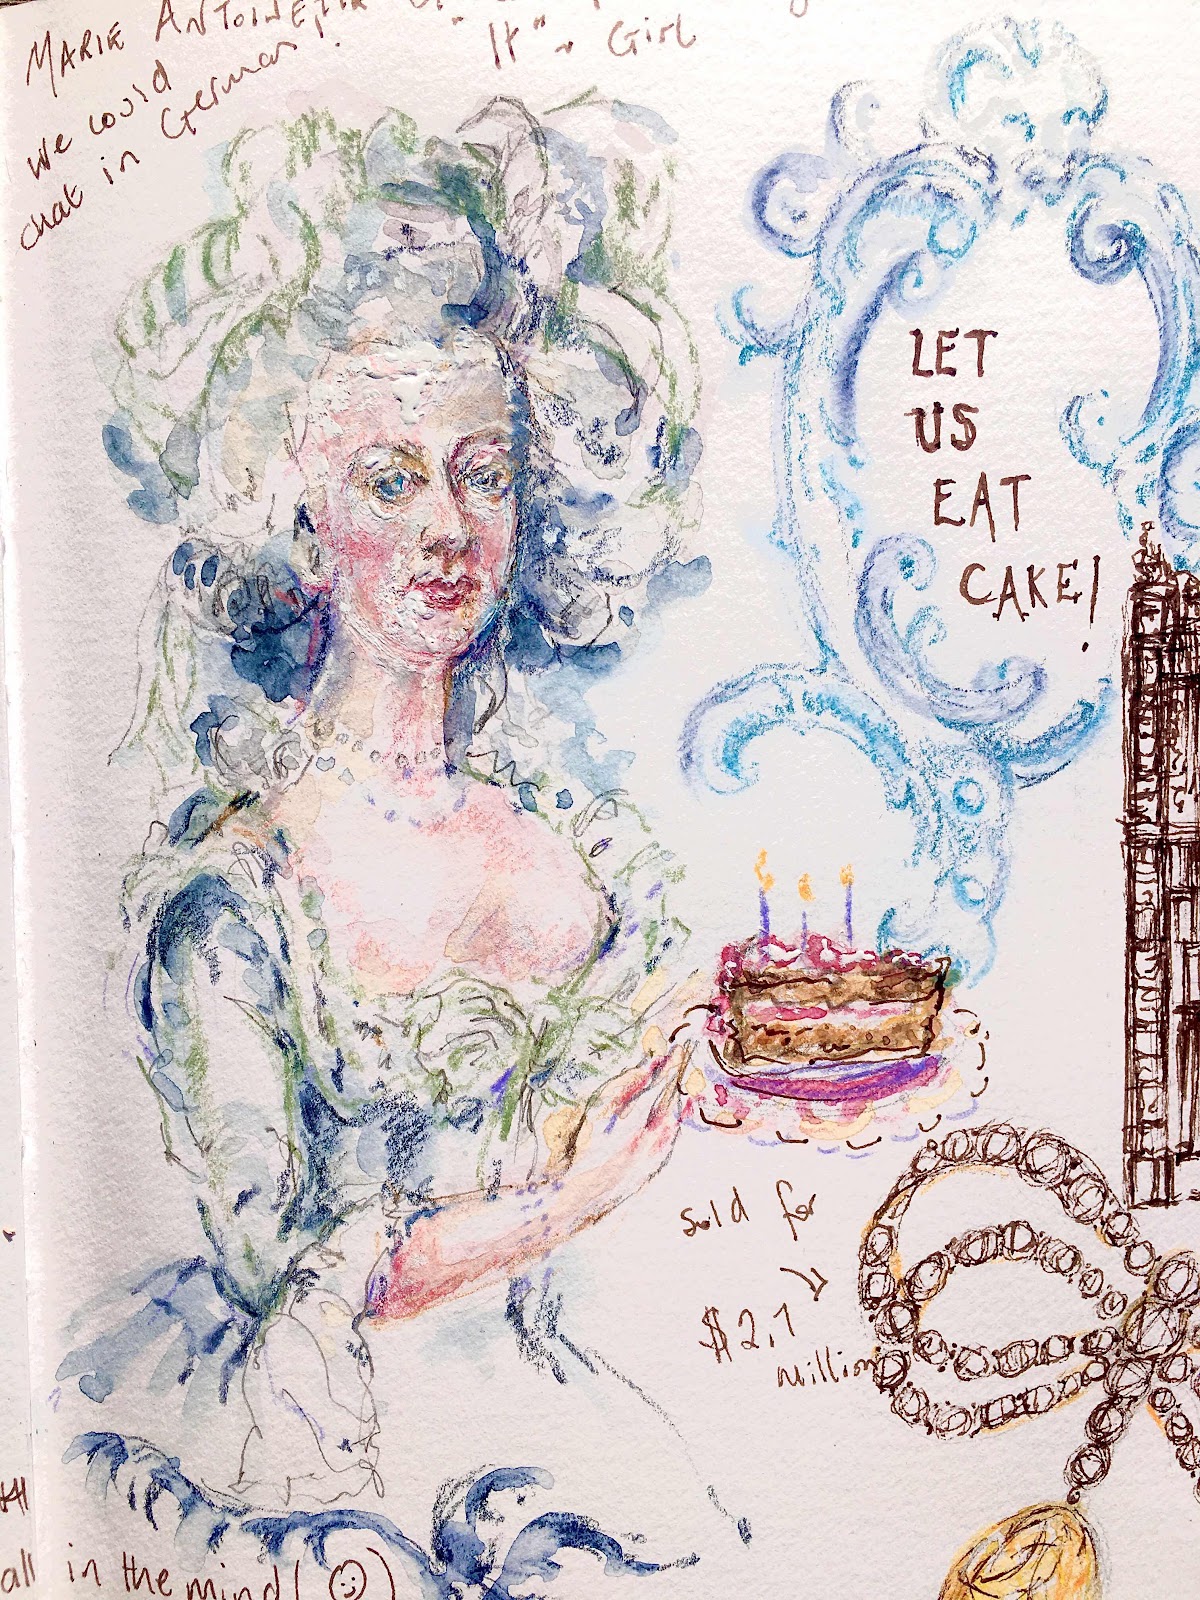 MARIE ANTOINETTE
"It" ~ Girl
we could
chat in German!
LET
US
EAT
CAKE!
sold for
$2,1
million
all in the mind (☺)